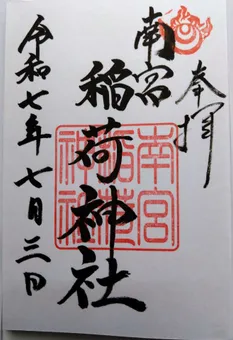 奉拝
南宮
稲荷神社
南宮
稲荷
神社
令和七年七月三日